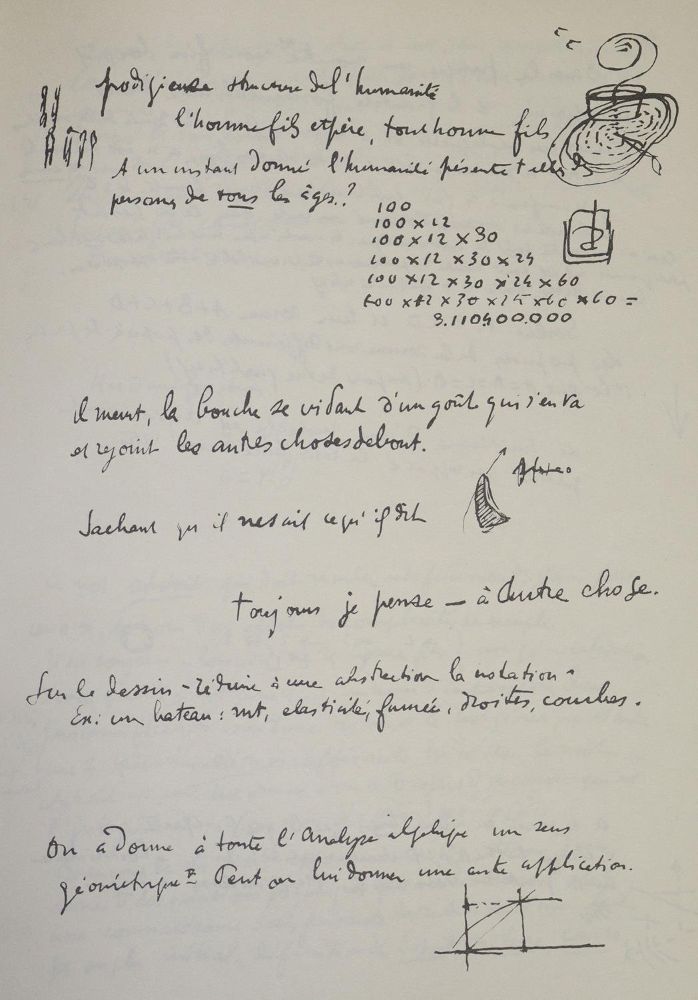 prodigieuse structure de l'humanité
l'homme fils et père, tout homme fils
A un instant donné l'humanité présente t elle des
persones de tous les âges.?
100
100 x 12
100 x 12 x 30
100 x 12 x 30 x 24
100 x 12 x 30 x 24 x 60
100 x 12 x 30 x 24 x 60 x 60 =
3.110400.000
il meurt, la bouche se vidant d'un goût qui s'en va
et rejoint les autres choses debout.
Sachant qu'il ne sait ce qu'il dit
Toujours je pense — à Autre chose.
Sur le dessin - réduire à une abstraction la notation.
Ex: un bateau: mt, elasticité, fumée, droites, courbes.
On a donné à toute l'Analyse algébrique un sens
géométrique Peut on lui donner une autre application.